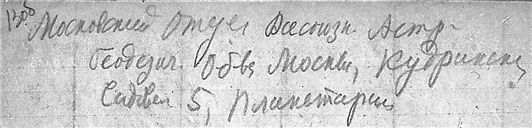 Московский Отдел Всесоюзн. Астр-
Геодезич. Об-ва Москва, Кудринская
Садовая 5, Планетарий